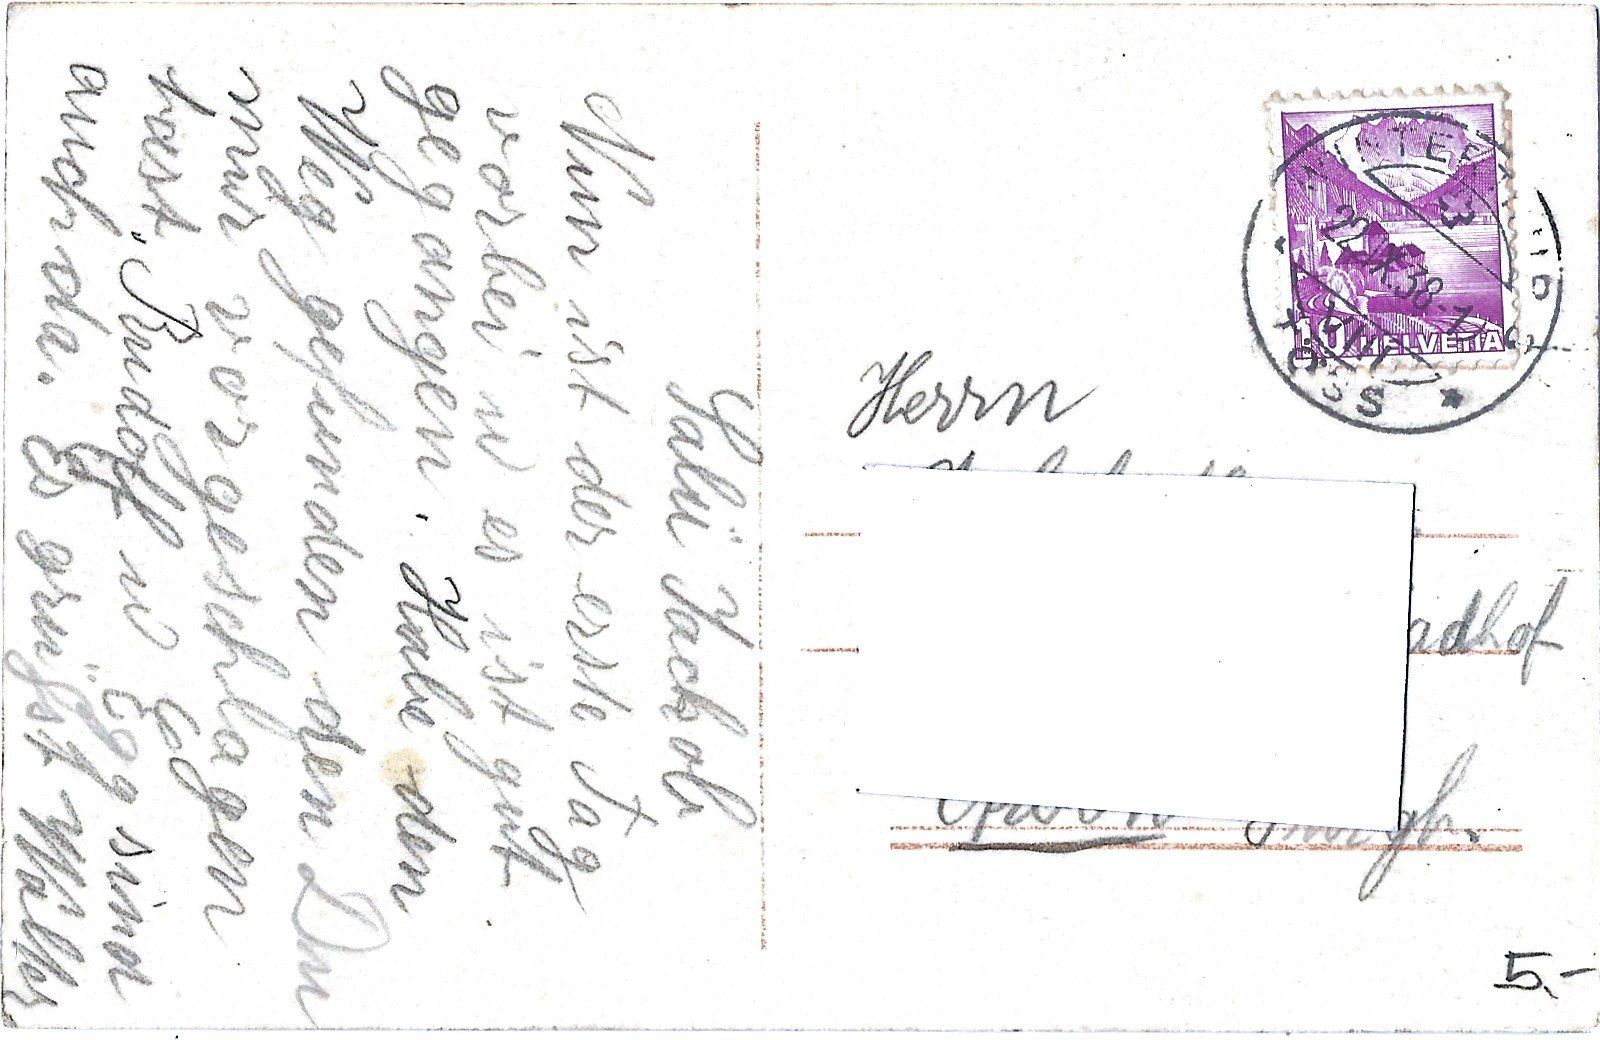 Sali Jackob
Nun ist der erste Tag
vorbei u es ist gut
gegangen. Habe den
Weg gefunden den Du
mir vorgeschlagen
hast. Rudolf u Eg sind
auch da. Es grüsst Walter
Herrn
adhof
Thurgb.
HELVETIA
10
22.IX.38.-1
5.-